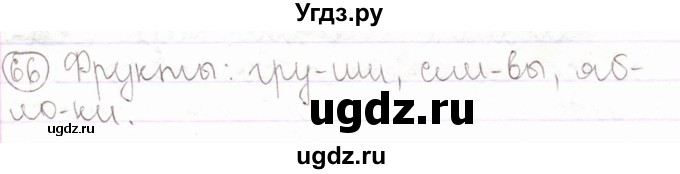 Угдз.ру
66 Фрукты: гру-ши, сли-вы, яб-
ло-ки.
ugdz.ru
ugdz.ru
ugdz.ru